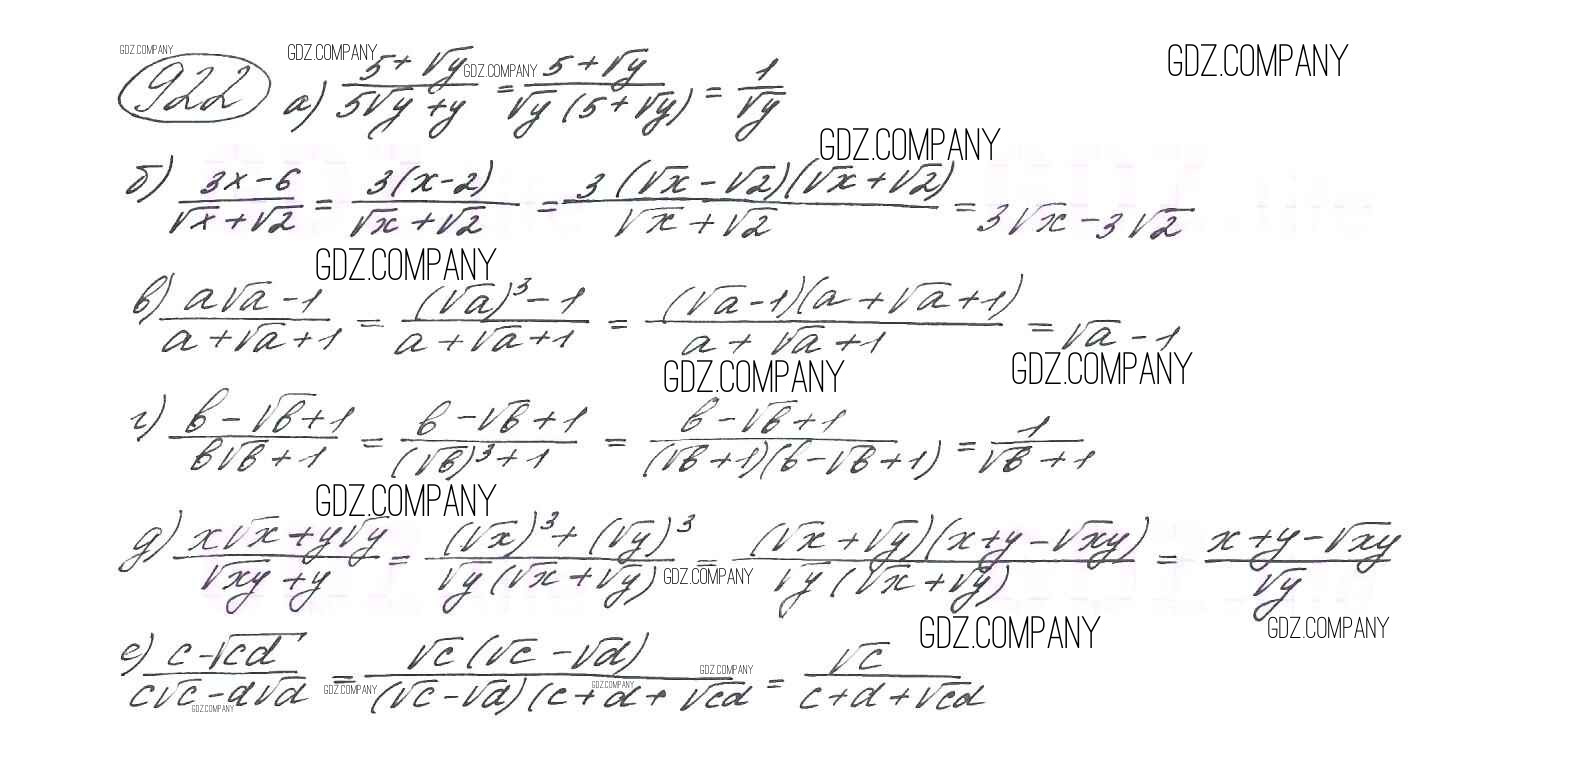 GDZ.COMPANY GDZ.COMPANY GDZ.COMPANY GDZ.COMPANY
922 а) (5+√y)/(5√y+y) = (5+√y)/(√y(5+√y)) = 1/√y
GDZ.COMPANY
б) (3x-6)/(√x+√2) = 3(x-2)/(√x+√2) = 3(√x-√2)(√x+√2)/(√x+√2) = 3√x-3√2
GDZ.COMPANY
в) (a√a-1)/(a+√a+1) = ((√a)³-1)/(a+√a+1) = (√a-1)(a+√a+1)/(a+√a+1) = √a-1
GDZ.COMPANY GDZ.COMPANY
г) (b-√b+1)/(b√b+1) = (b-√b+1)/((√b)³+1) = (b-√b+1)/((√b+1)(b-√b+1)) = 1/(√b+1)
GDZ.COMPANY
д) (x√x+y√y)/(√xy+y) = ((√x)³+(√y)³)/(√y(√x+√y)) = (√x+√y)(x+y-√xy)/(√y(√x+√y)) = (x+y-√xy)/√y
GDZ.COMPANY
GDZ.COMPANY GDZ.COMPANY
е) (c-√cd)/(c√c-d√d) = √c(√c-√d)/((√c-√d)(c+d+√cd)) = √c/(c+d+√cd)
GDZ.COMPANY GDZ.COMPANY GDZ.COMPANY GDZ.COMPANY